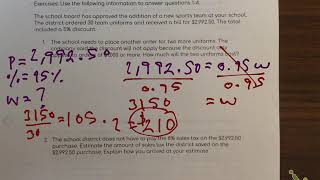 Exercises: Use the following information to answer questions 1-4.
The school board has approved the addition of a new sports team at your school.
The district ordered 30 team uniforms and received a bill for $2,992.50. The total
included a 5% discount.
1. The school needs to place another order for two more uniforms. The
discount will not apply because the discount
orders of $1000 or more. How much will the two uniforms
P = 2,992.50
% = 95%
W = ?
2,992.50 = 0.95 W
0.95 0.95
3150 = W
3150
30
= 105 · 2 = $210
2. The school district does not have to pay the 6% sales tax on the $2,992.50
purchase. Estimate the amount of sales tax the district saved on the
$2,992.50 purchase. Explain how you arrived at your estimate.